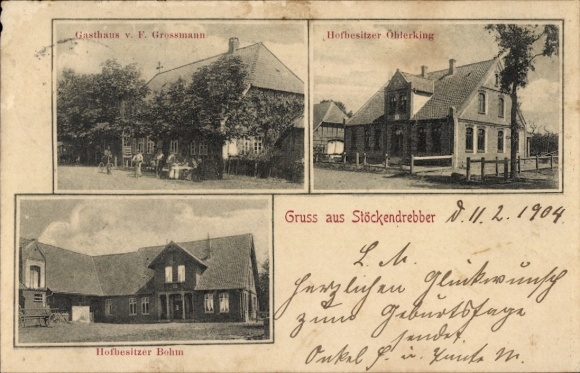 Gasthaus v. F. Grossmann
Hofbesitzer Öhlerking
Gruss aus Stöckendrebber
d. 11. 2. 1904
L. M.
Herzlichen Glückwunsch
zum Geburtstage
sendet
Onkel H. u. Tante M.
Hofbesitzer Bohm